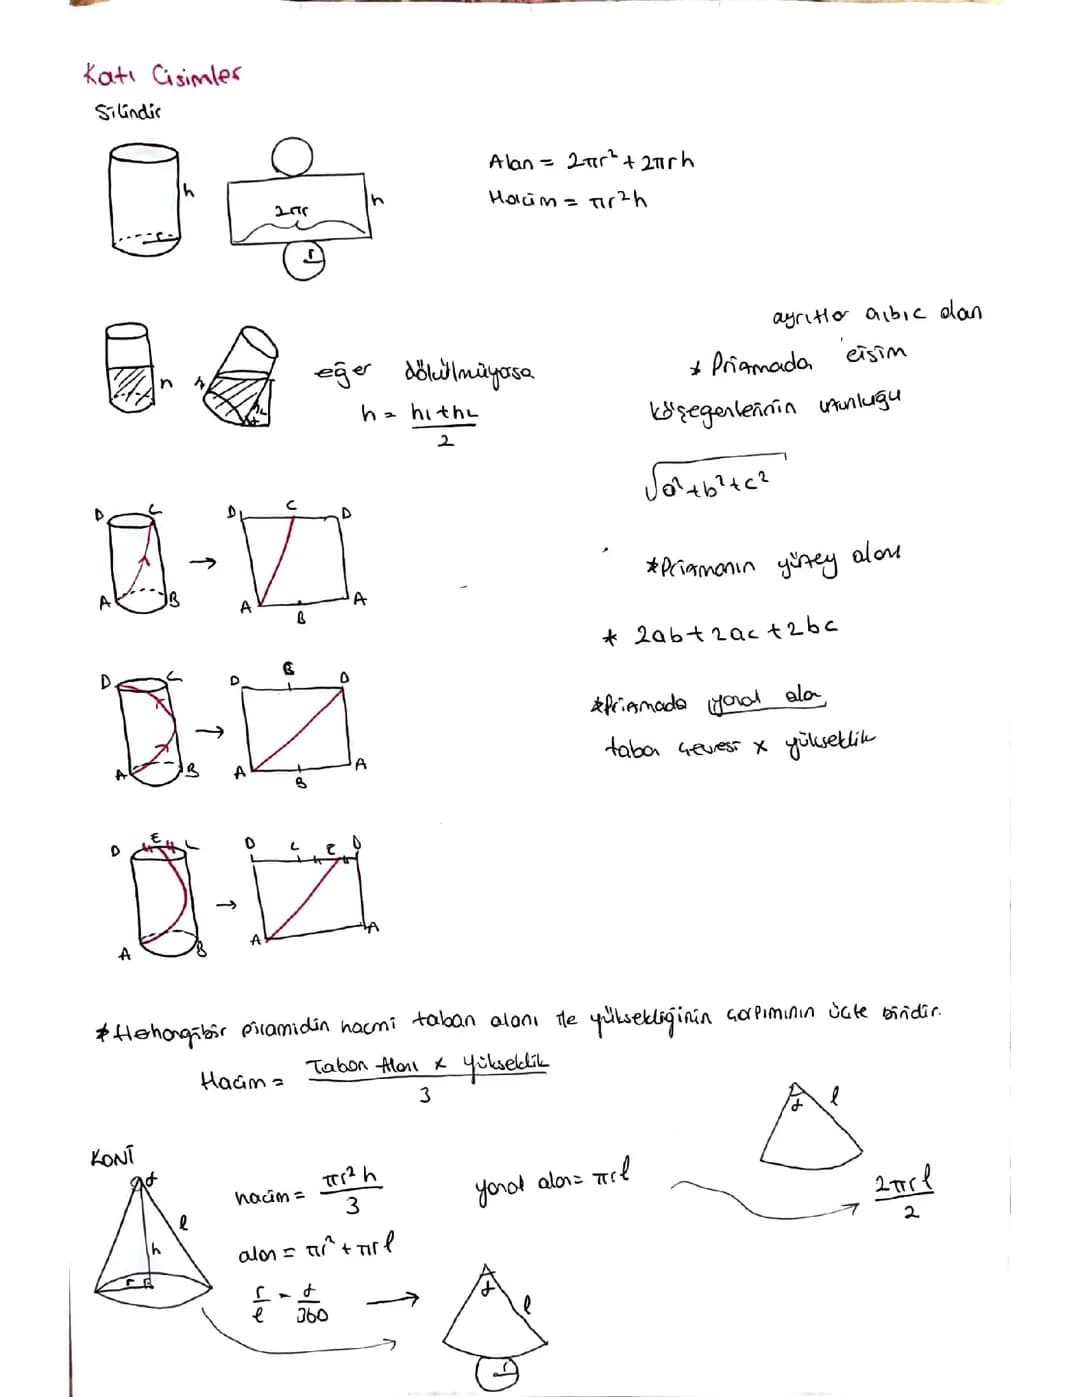 Katı Cisimler
Silindir
h
r
2πr
h
r
Alan = 2πr² + 2πrh
Hacim = πr²h
h
eğer dökülmüyosa
h = h₁+h₂
2
ayrıtlar a,b,c olan
* Prizmada cisim
köşegenlerinin uzunluğu
√a²+b²+c²
*Prizmanın yüzey alanı
* 2ab+2ac+2bc
*Prizmada yanal alan
taban çevresi x yükseklik
D C
A B
→
D C D
A B A
D C
A B
→
D C D
A B A
D E C
A B
→
D C E D
A A
*Herhangi bir piramidin hacmi taban alanı ile yüksekliğinin çarpımının üçte biridir.
Hacim = Taban Alanı x Yükseklik
3
KONİ
α
l
h
r
hacim = πr²h
3
alan = πr² + πrl
r = α
l 360
yanal alan = πrl
α l
2πrl
2
α
l
r